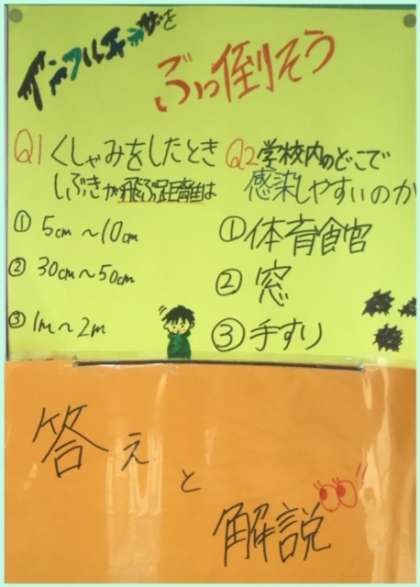 インフルエンザを
ぶっ倒そう
Q1 くしゃみをしたとき
しぶきが飛ぶ距離は
① 5cm～10cm
② 30cm～50cm
③ 1m～2m
Q2 学校内のどこで
感染しやすいのか
① 体育館
② 窓
③ 手すり
答えと
解説!!